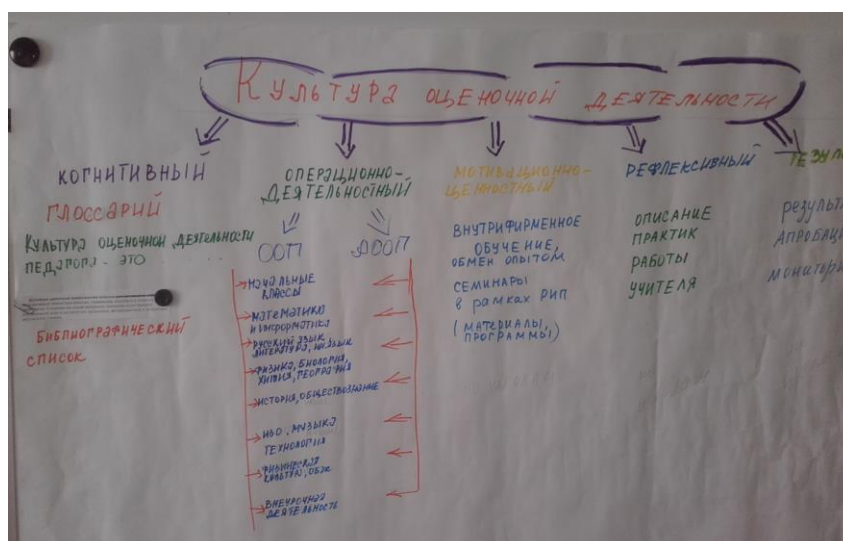 Культура оценочной деятельности
КОГНИТИВНЫЙ
ГЛОССАРИЙ
Культура оценочной деятельности
педагога - это
Библиографический
список
ОПЕРАЦИОННО-
ДЕЯТЕЛЬНОСТНЫЙ
ООП
АООП
начальные
классы
математика
и информатика
русский язык
литература, ин.язык
физика, биология,
химия, география
история, обществознание
ИЗО, музыка
технология
физическая
культура, ОБЖ
внеурочная
деятельность
МОТИВАЦИОННО-
ЦЕННОСТНЫЙ
ВНУТРИФИРМЕННОЕ
ОБУЧЕНИЕ,
ОБМЕН ОПЫТОМ
СЕМИНАРЫ
в рамках РИП
(МАТЕРИАЛЫ,
ПРОГРАММЫ)
РЕФЛЕКСИВНЫЙ
ОПИСАНИЕ
ПРАКТИК
РАБОТЫ
УЧИТЕЛЯ
РЕЗУЛ
результ
АПРОБАЦИ
монитори